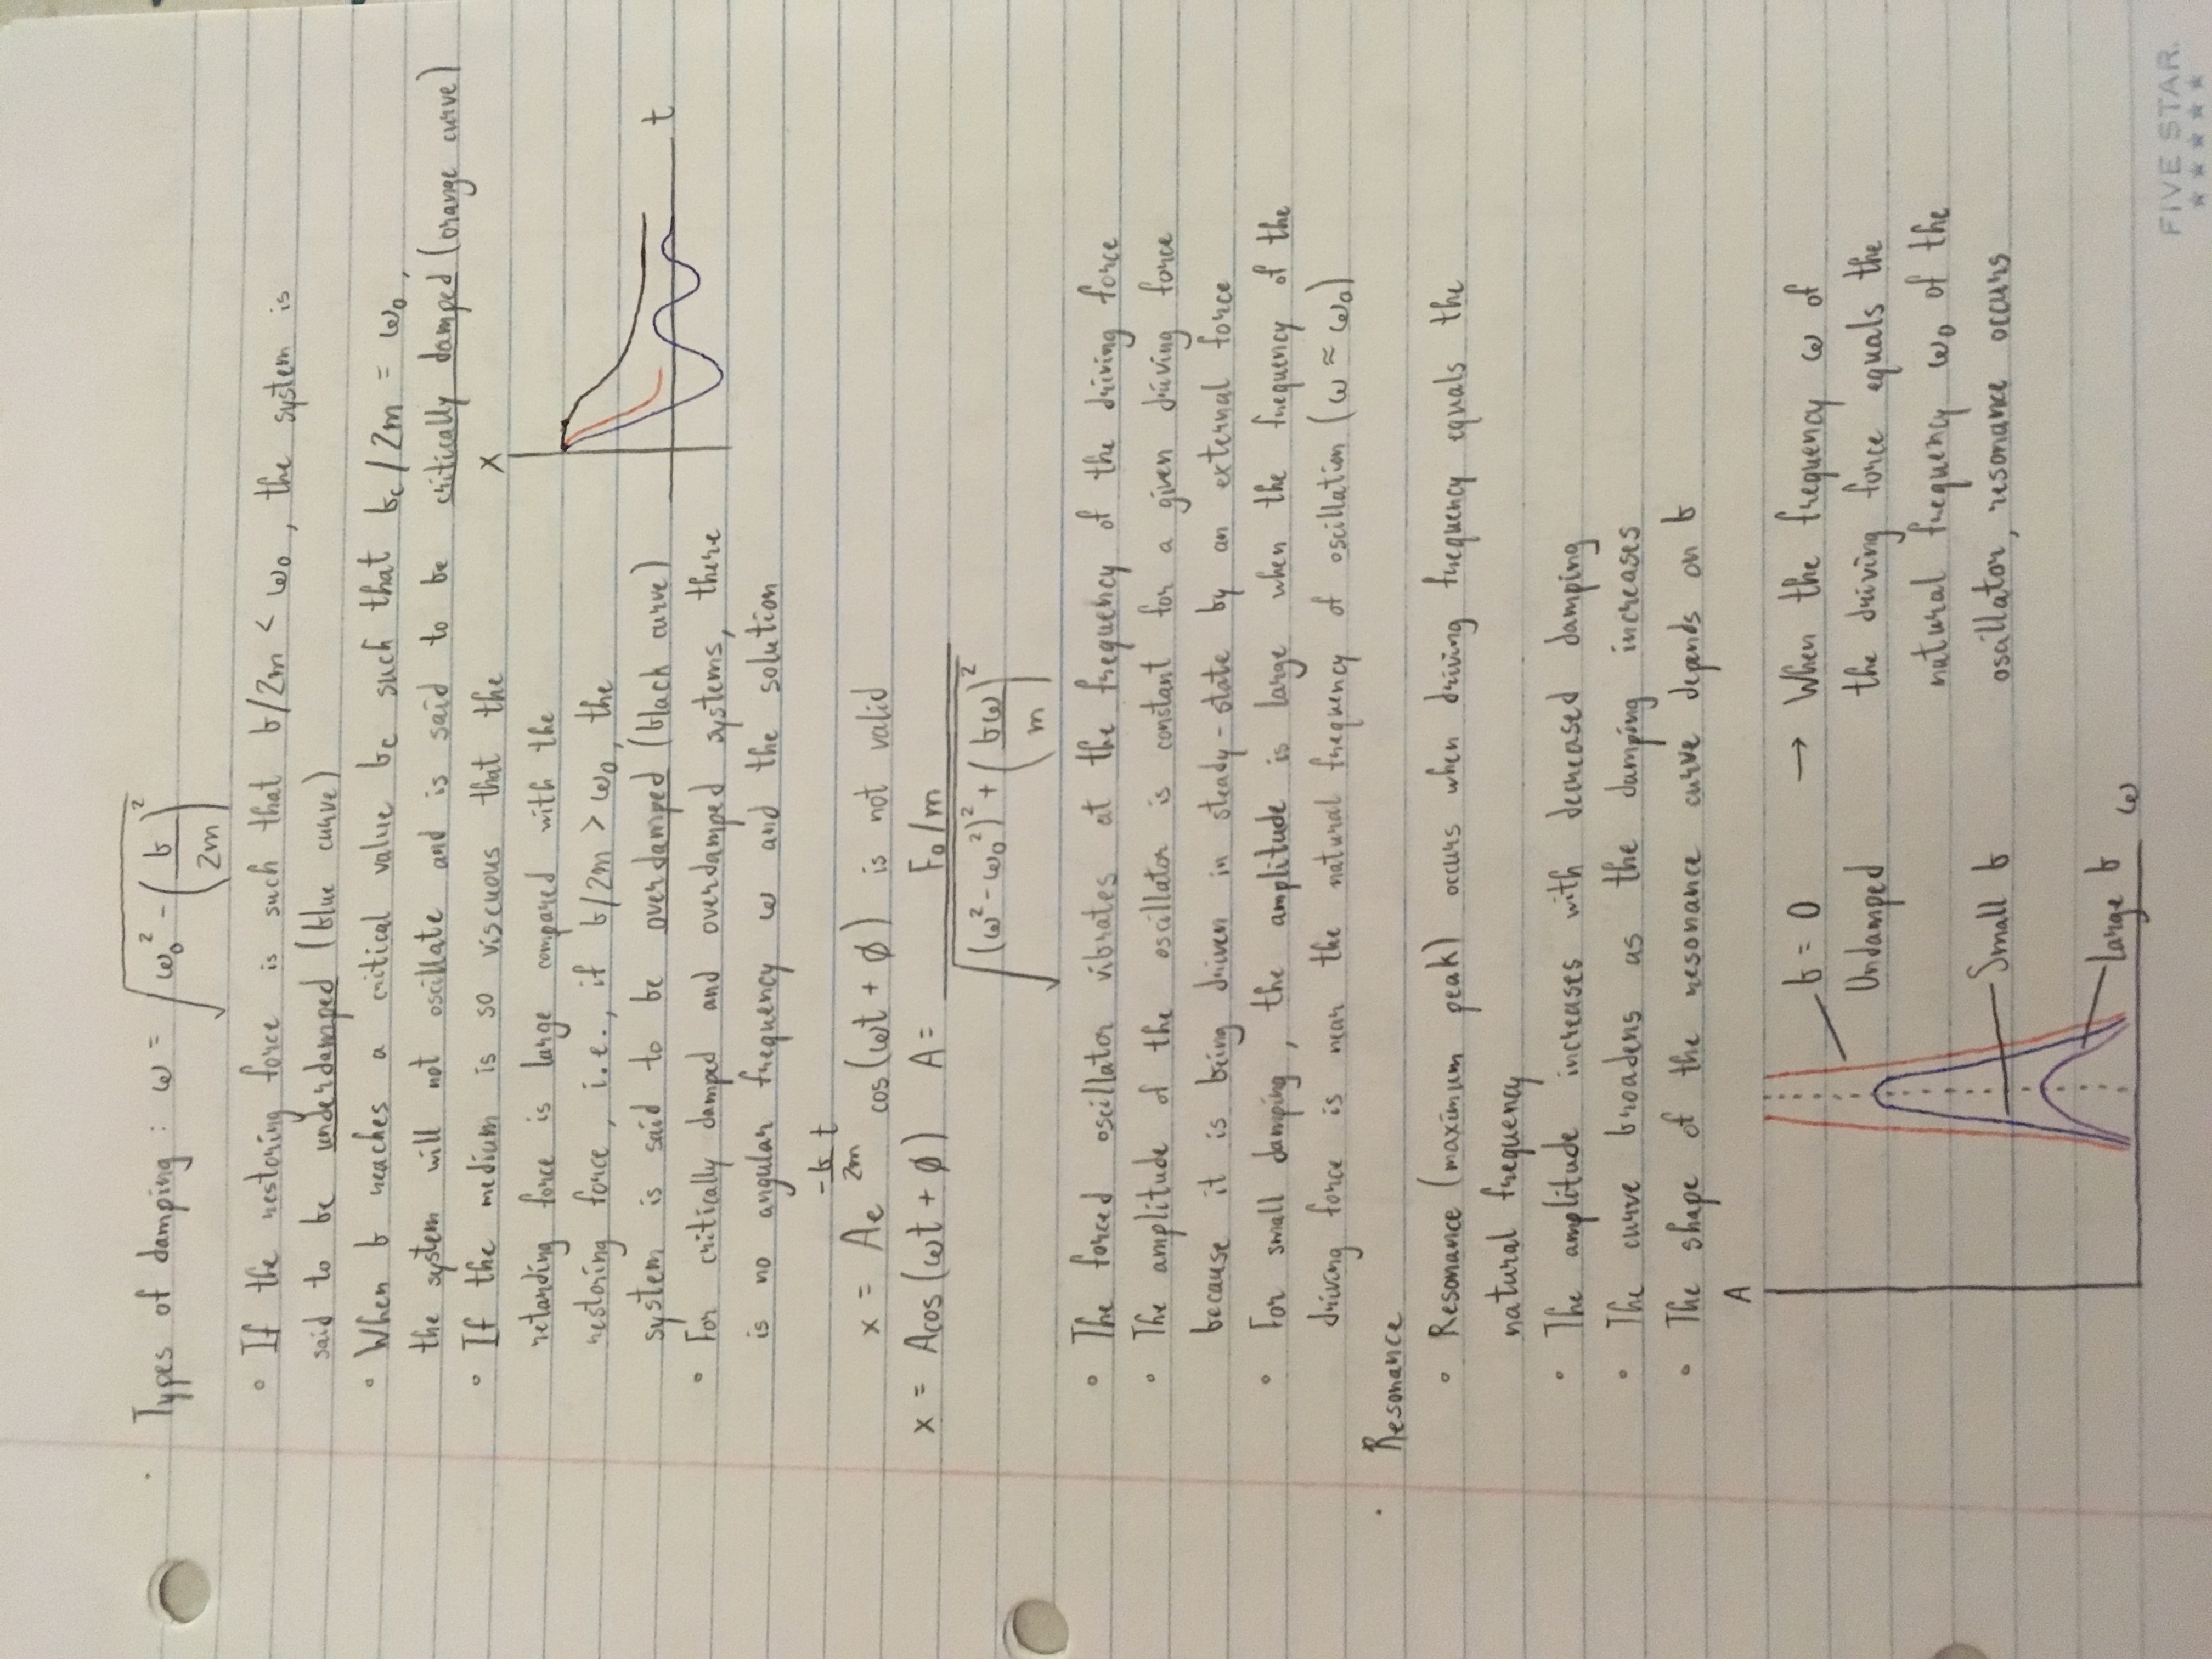 Types of damping : ω = √(ω₀² - (b/2m)²)
◦ If the restoring force is such that b/2m < ω₀, the system is
said to be underdamped (blue curve)
◦ When b reaches a critical value bc such that bc/2m = ω₀,
the system will not oscillate and is said to be critically damped (orange curve)
◦ If the medium is so viscuous that the
retarding force is large compared with the
restoring force, i.e., if b/2m > ω₀, the
system is said to be overdamped (black curve)
◦ For critically damped and overdamped systems, there
is no angular frequency ω and the solution
x = Ae^(-b/2m t) cos(ωt + ø) is not valid
X
t
x = Acos(ωt + ø) A = (F₀/m) / √((ω² - ω₀²)² + (bω/m)²)
◦ The forced oscillator vibrates at the frequency of the driving force
◦ The amplitude of the oscillator is constant for a given driving force
because it is being driven in steady-state by an external force
◦ For small damping, the amplitude is large when the frequency of the
driving force is near the natural frequency of oscillation (ω ≈ ω₀)
Resonance
◦ Resonance (maximum peak) occurs when driving frequency equals the
natural frequency
◦ The amplitude increases with decreased damping
◦ The curve broadens as the damping increases
◦ The shape of the resonance curve depends on b
A
b = 0
Undamped
Small b
Large b
ω
→ When the frequency ω of
the driving force equals the
natural frequency ω₀ of the
oscillator, resonance occurs
FIVE STAR.
★★★★★